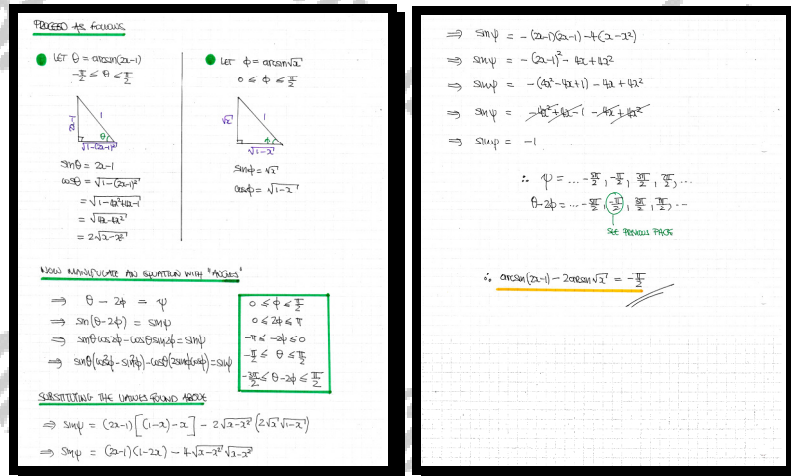 PROCEED AS FOLLOWS
LET θ = arcsin(2x-1)
-π/2 ≤ θ ≤ π/2
2x-1
1
θ
√1-(2x-1)²
sinθ = 2x-1
cosθ = √1-(2x-1)²
= √1-4x²+4x-1
= √4x-4x²
= 2√x-x²
LET ϕ = arcsin√x
0 ≤ ϕ ≤ π/2
√x
1
ϕ
√1-x
sinϕ = √x
cosϕ = √1-x
NOW MANIPULATE AN EQUATION WITH "ANGLES"
⇒ θ - 2ϕ = ψ
⇒ sin(θ-2ϕ) = sinψ
⇒ sinθcos2ϕ - cosθsin2ϕ = sinψ
⇒ sinθ(cos²ϕ - sin²ϕ) - cosθ(2sinϕcosϕ) = sinψ
0 ≤ ϕ ≤ π/2
0 ≤ 2ϕ ≤ π
-π ≤ -2ϕ ≤ 0
-π/2 ≤ θ ≤ π/2
-3π/2 ≤ θ-2ϕ ≤ π/2
SUBSTITUTING THE VALUES FOUND ABOVE
⇒ sinψ = (2x-1)[(1-x)-x] - 2√x-x² (2√x √1-x)
⇒ sinψ = (2x-1)(1-2x) - 4√x-x² √x-x²
⇒ sinψ = -(2x-1)(2x-1) - 4(x-x²)
⇒ sinψ = -(2x-1)² - 4x + 4x²
⇒ sinψ = -(4x²-4x+1) - 4x + 4x²
⇒ sinψ = -4x²+4x-1 -4x+4x²
⇒ sinψ = -1
∴ ψ = ... -5π/2, -π/2, 3π/2, 7π/2, ...
θ-2ϕ = ... -5π/2, -π/2, 3π/2, 7π/2, ...
SEE PREVIOUS PAGE
∴ arcsin(2x-1) - 2arcsin√x = -π/2